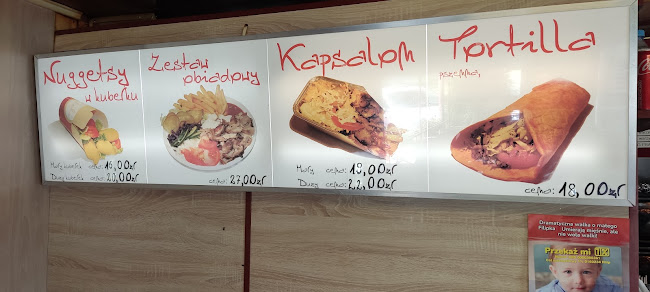 Nuggetsy
w kubełku
Mały kubełek cena: 16,00zł
Duży kubełek cena: 20,00zł
Zestaw
obiadowy
cena: 27,00zł
Kapsalom
Mały cena: 18,00zł
Duży cena: 22,00zł
Tortilla
pszenna,
cena: 18,00zł
Dramatyczna walka o małego
Filipka Umierają mięśnie, ale
nie wola walki!
Przekaż mi 1%